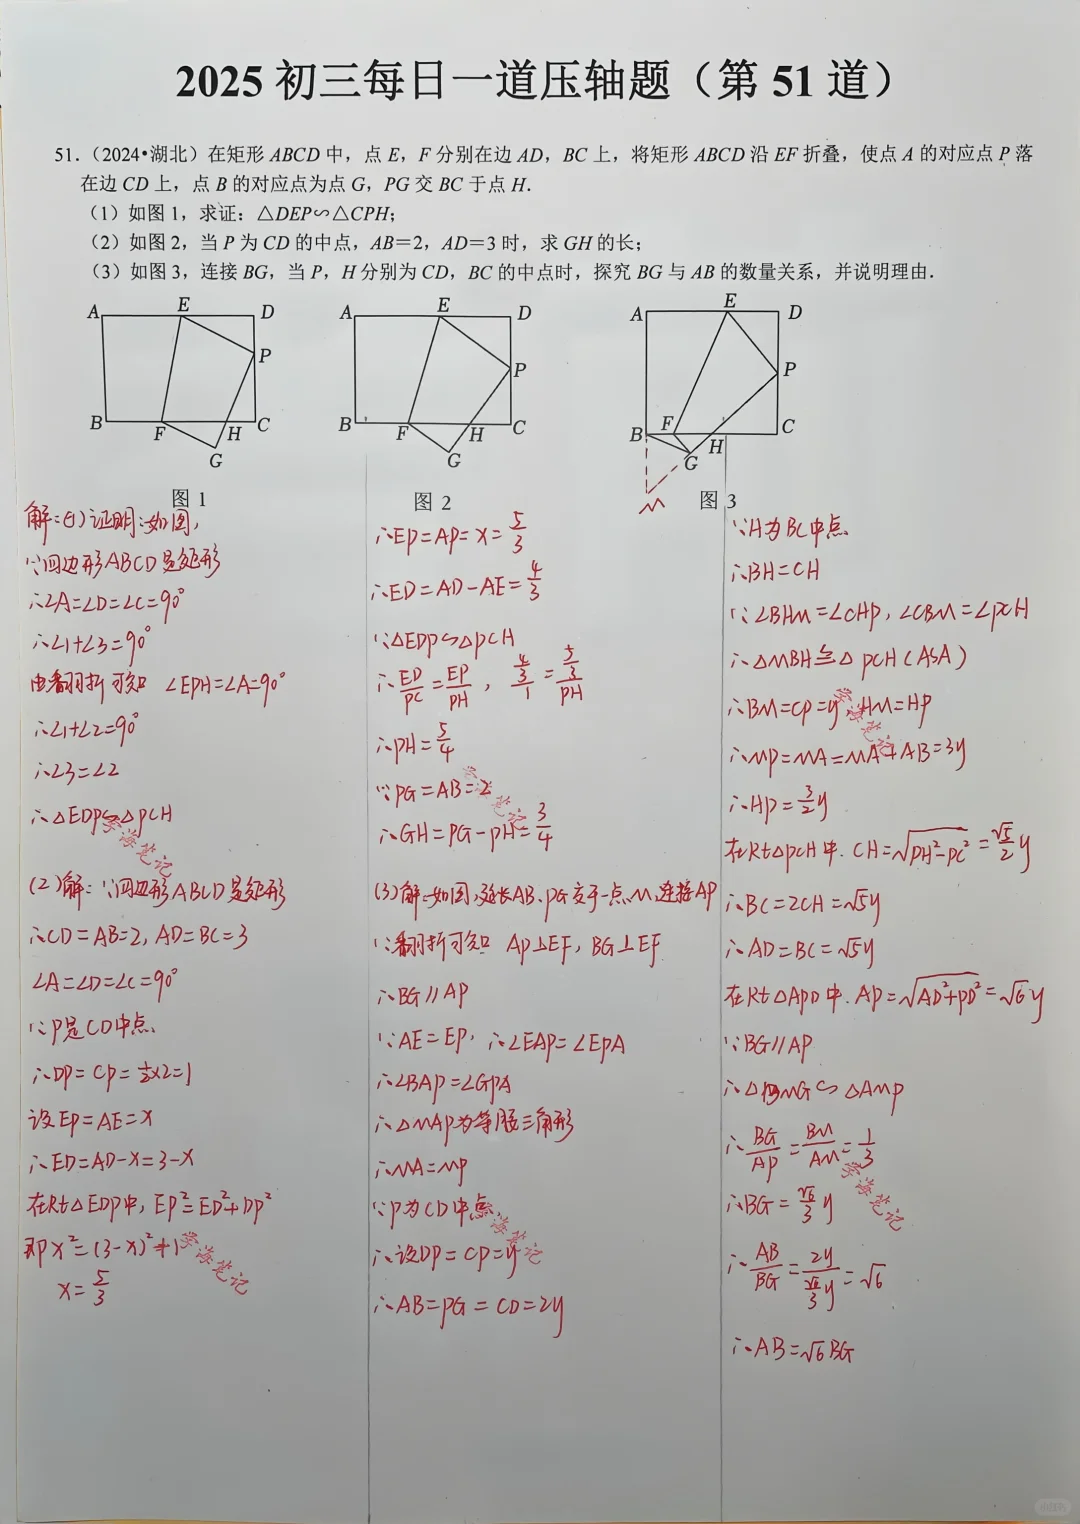 2025初三每日一道压轴题（第51道）
51．（2024•湖北）在矩形ABCD中，点E，F分别在边AD，BC上，将矩形ABCD沿EF折叠，使点A的对应点P落
在边CD上，点B的对应点为点G，PG交BC于点H．
（1）如图1，求证：△DEP∽△CPH；
（2）如图2，当P为CD的中点，AB＝2，AD＝3时，求GH的长；
（3）如图3，连接BG，当P，H分别为CD，BC的中点时，探究BG与AB的数量关系，并说明理由．
A E D P B F H C G
图1
A E D P B F H C G
图2
A E D P B F H C G M
图3
解:(1)证明:如图,
∵四边形ABCD是矩形
∴∠A=∠D=∠C=90°
∴∠1+∠3=90°
由翻折可知 ∠EPH=∠A=90°
∴∠1+∠2=90°
∴∠3=∠2
∴△EDP∽△PCH
(2)解: ∵四边形ABCD是矩形
∴CD=AB=2, AD=BC=3
∠A=∠D=∠C=90°
∵P是CD中点.
∴DP=CP=½×2=1
设EP=AE=x
∴ED=AD-x=3-x
在Rt△EDP中, EP²=ED²+DP²
即x²=(3-x)²+1
x=5/3
∴EP=AP=x=5/3
∴ED=AD-AE=4/3
∵△EDP∽△PCH
∴ED/PC=EP/PH, 4/3/1=5/3/PH
∴PH=5/4
∵PG=AB=2
∴GH=PG-PH=3/4
(3)解:如图,延长AB、PG交于一点M,连接AP
∵翻折可知 AP⊥EF, BG⊥EF
∴BG∥AP
∵AE=EP, ∴∠EAP=∠EPA
∴∠BAP=∠GPA
∴△MAP为等腰三角形
∴MA=MP
∵P为CD中点
∴设DP=CP=y
∴AB=PG=CD=2y
∵H为BC中点.
∴BH=CH
∵∠BHM=∠CHP, ∠CBM=∠PCH
∴△MBH≌△PCH(ASA)
∴BM=CP=y HM=HP
∴MP=MA=MA+AB=3y
∴HP=3/2y
在Rt△PCH中. CH=√PH²-PC²=√5/2y
∴BC=2CH=√5y
∴AD=BC=√5y
在Rt△APD中. AP=√AD²+PD²=√6y
∵BG∥AP
∴△BMG∽△AMP
∴BG/AP=BM/AM=1/3
∴BG=√6/3y
∴AB/BG=2y/√6/3y=√6
∴AB=√6BG
学海笔记
学海笔记
学海笔记
学海笔记
学海笔记
学海笔记
小红书